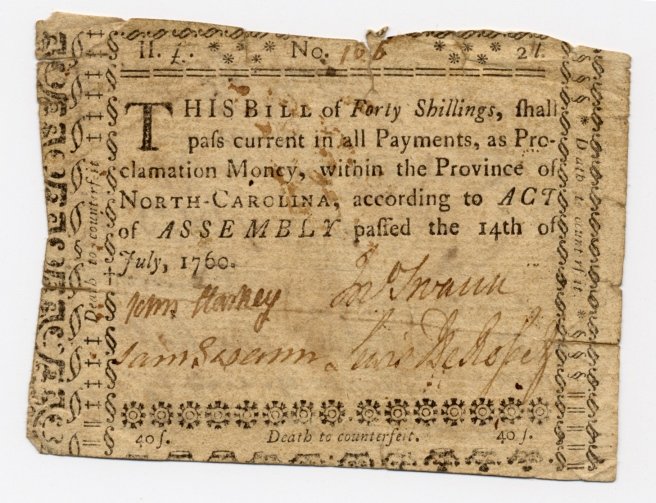 II. £. No. 106 2l.
THIS BILL of Forty Shillings, ſhall
paſs current in all Payments, as Pro-
clamation Money, within the Province of
NORTH-CAROLINA, according to ACT
of ASSEMBLY paſſed the 14th of
July, 1760.
John Starkey Jno Swann
Sam Swann Lewis DeRosset
40ſ. Death to counterfeit. 40ſ.
Death to counterfeit
Death to